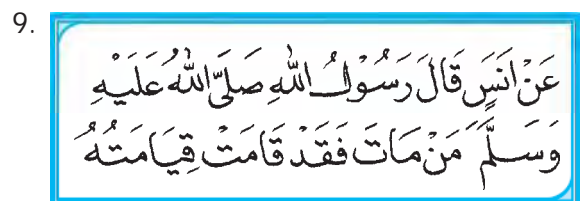 9.
عَنْ اَنَسٍ قَالَ رَسُوْلُ اللّٰهِ صَلَّى اللّٰهُ عَلَيْهِ
وَسَلَّمَ مَنْ مَاتَ فَقَدْ قَامَتْ قِيَامَتُهُ